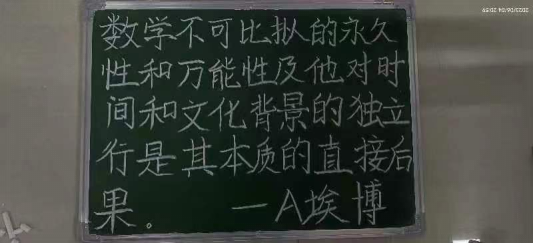 数学不可比拟的永久
性和万能性及他对时
间和文化背景的独立
行是其本质的直接后
果。 —A埃博